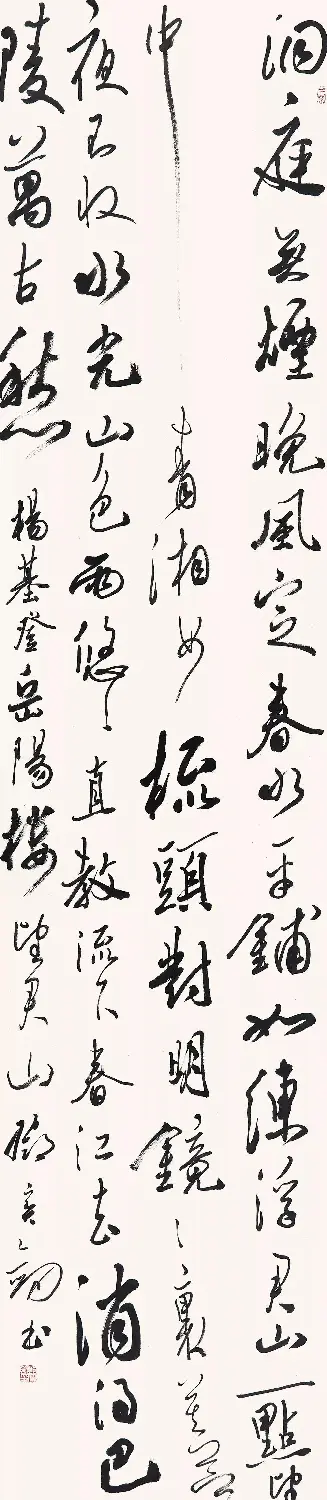 洞庭無煙晚風定春水平鋪如練淨君山一點望
中青湘女梳頭對明鏡〻裏芙蓉
夜不收水光山色兩悠〻直教流下春江去消得巴
陵萬古愁 楊基登岳陽樓望君山 書